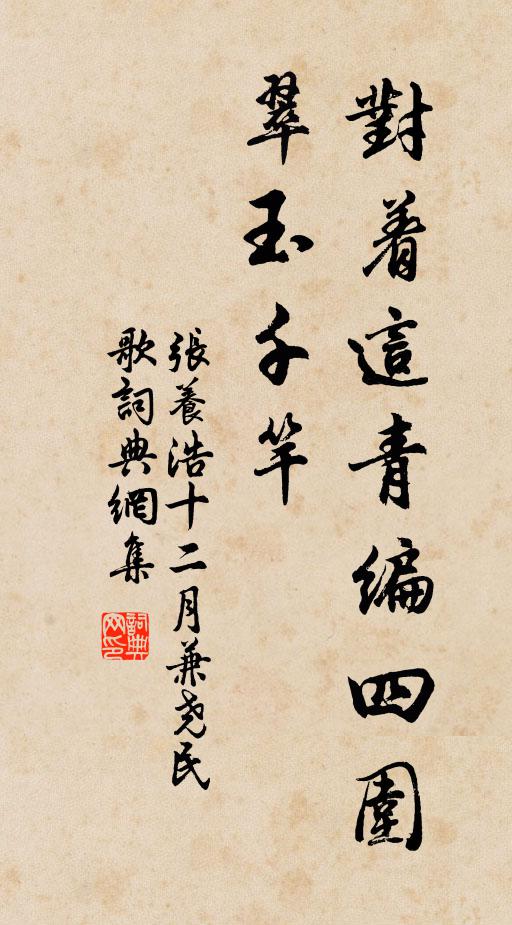 對着這青編四圍
翠玉千竿
張養浩十二月兼尧民
歌詞典網集
詞典
网印